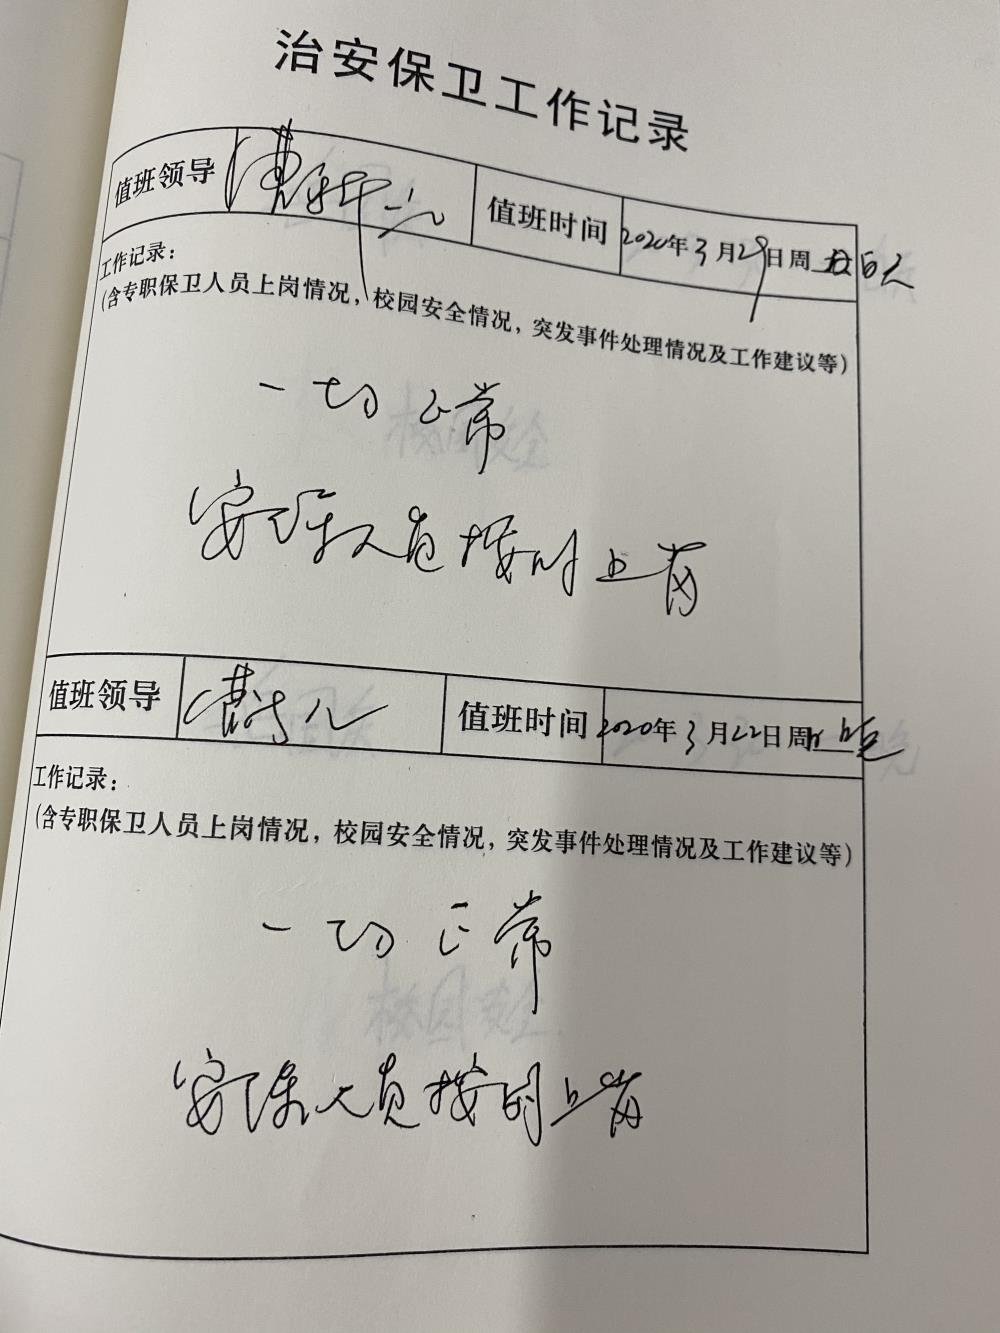 治安保卫工作记录
值班领导 值班时间 2020年3月29日周五白天
工作记录：
（含专职保卫人员上岗情况，校园安全情况，突发事件处理情况及工作建议等）
一切正常
安保人员按时上岗
值班领导 值班时间 2020年3月22日周
工作记录：
（含专职保卫人员上岗情况，校园安全情况，突发事件处理情况及工作建议等）
一切正常
安保人员按时上岗